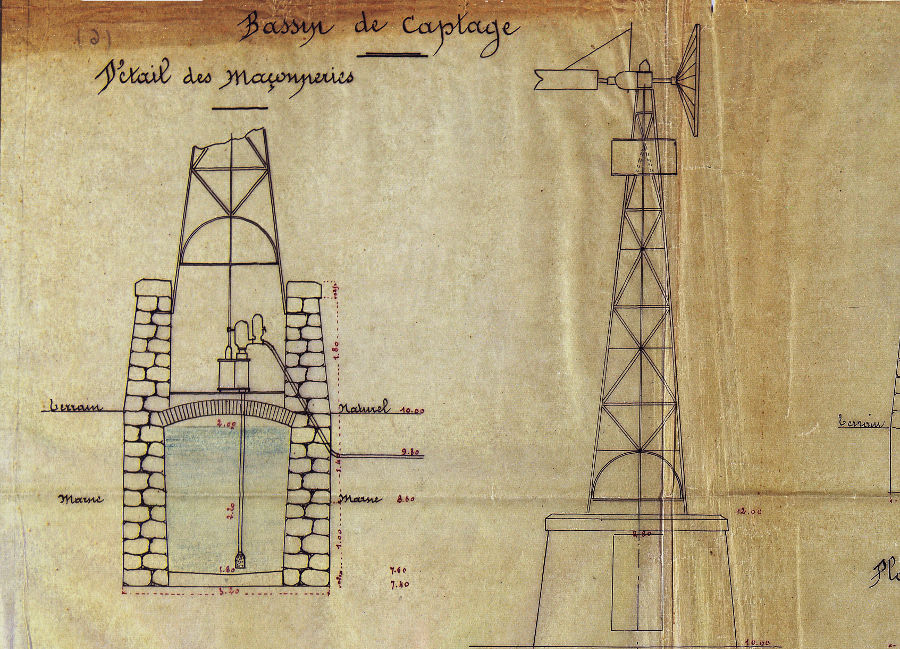 Bassin de Captage
Détail des Maçonneries
1.80
Terrain
Naturel 10.00
2.00
9.20
Marne
Marne 8.60
2.20
1.00
1.80
7.60
7.40
3.20
12.00
0.80
10.00
Terrain